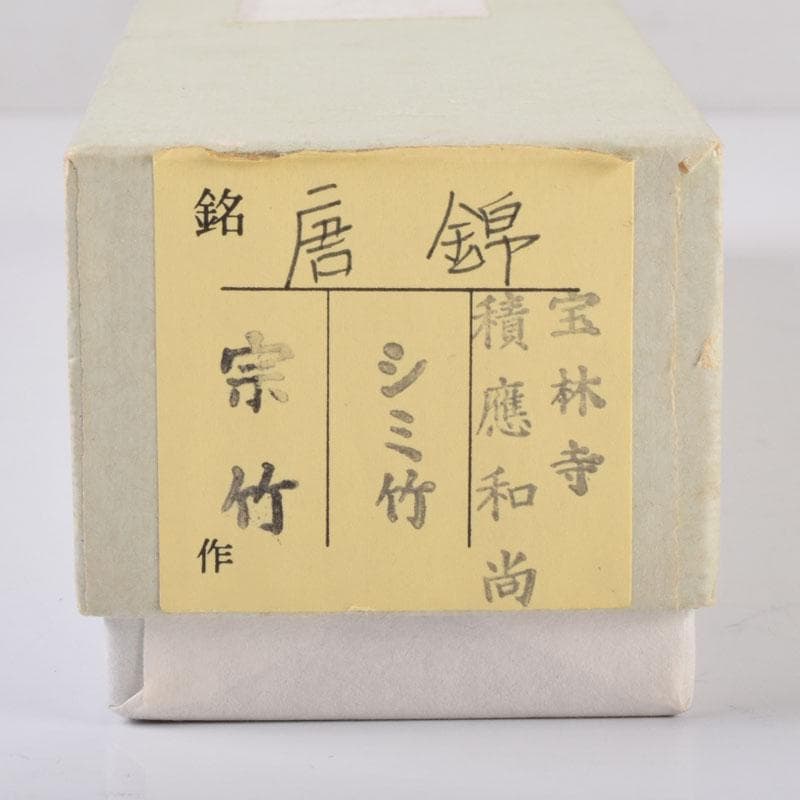 銘 唐錦
宝林寺
積應和尚
シミ竹
宗竹
作